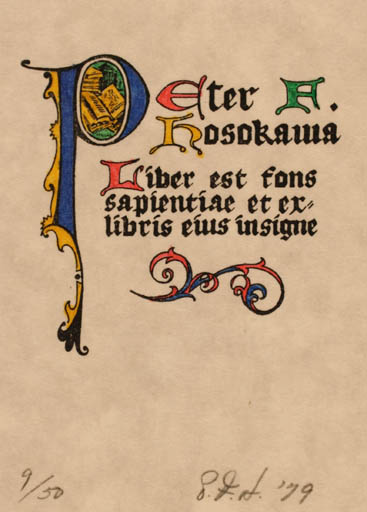 Peter A.
Hosokawa
Liber est fons
sapientiae et ex-
libris eius insigne
9/50 P.A.H. '79